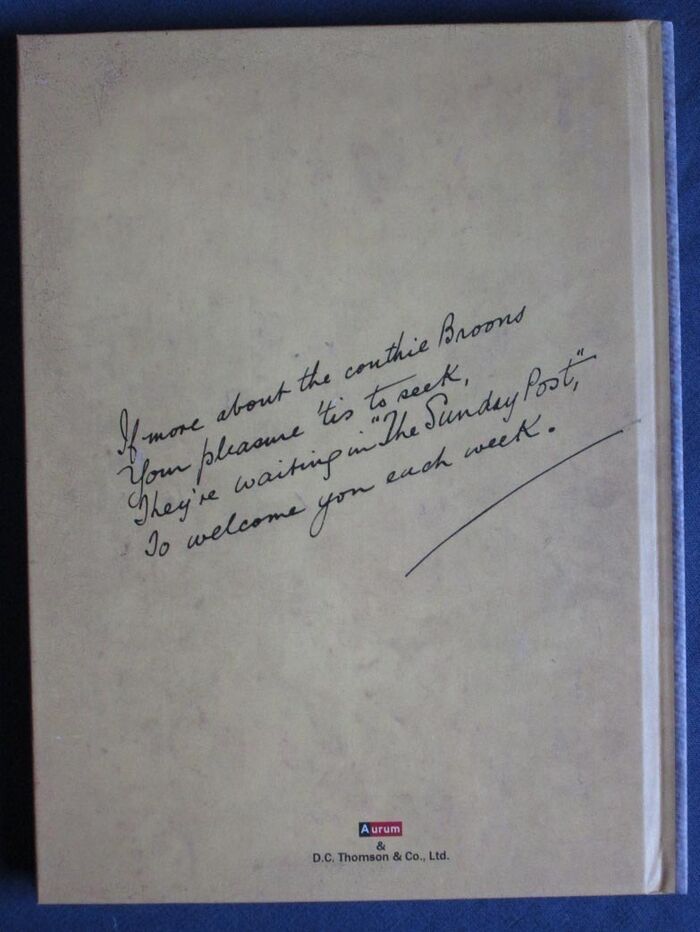 If more about the couthie Broons
Your pleasure 'tis to seek,
They're waiting in "The Sunday Post",
To welcome you each week.
Aurum
&
D.C. Thomson & Co., Ltd.